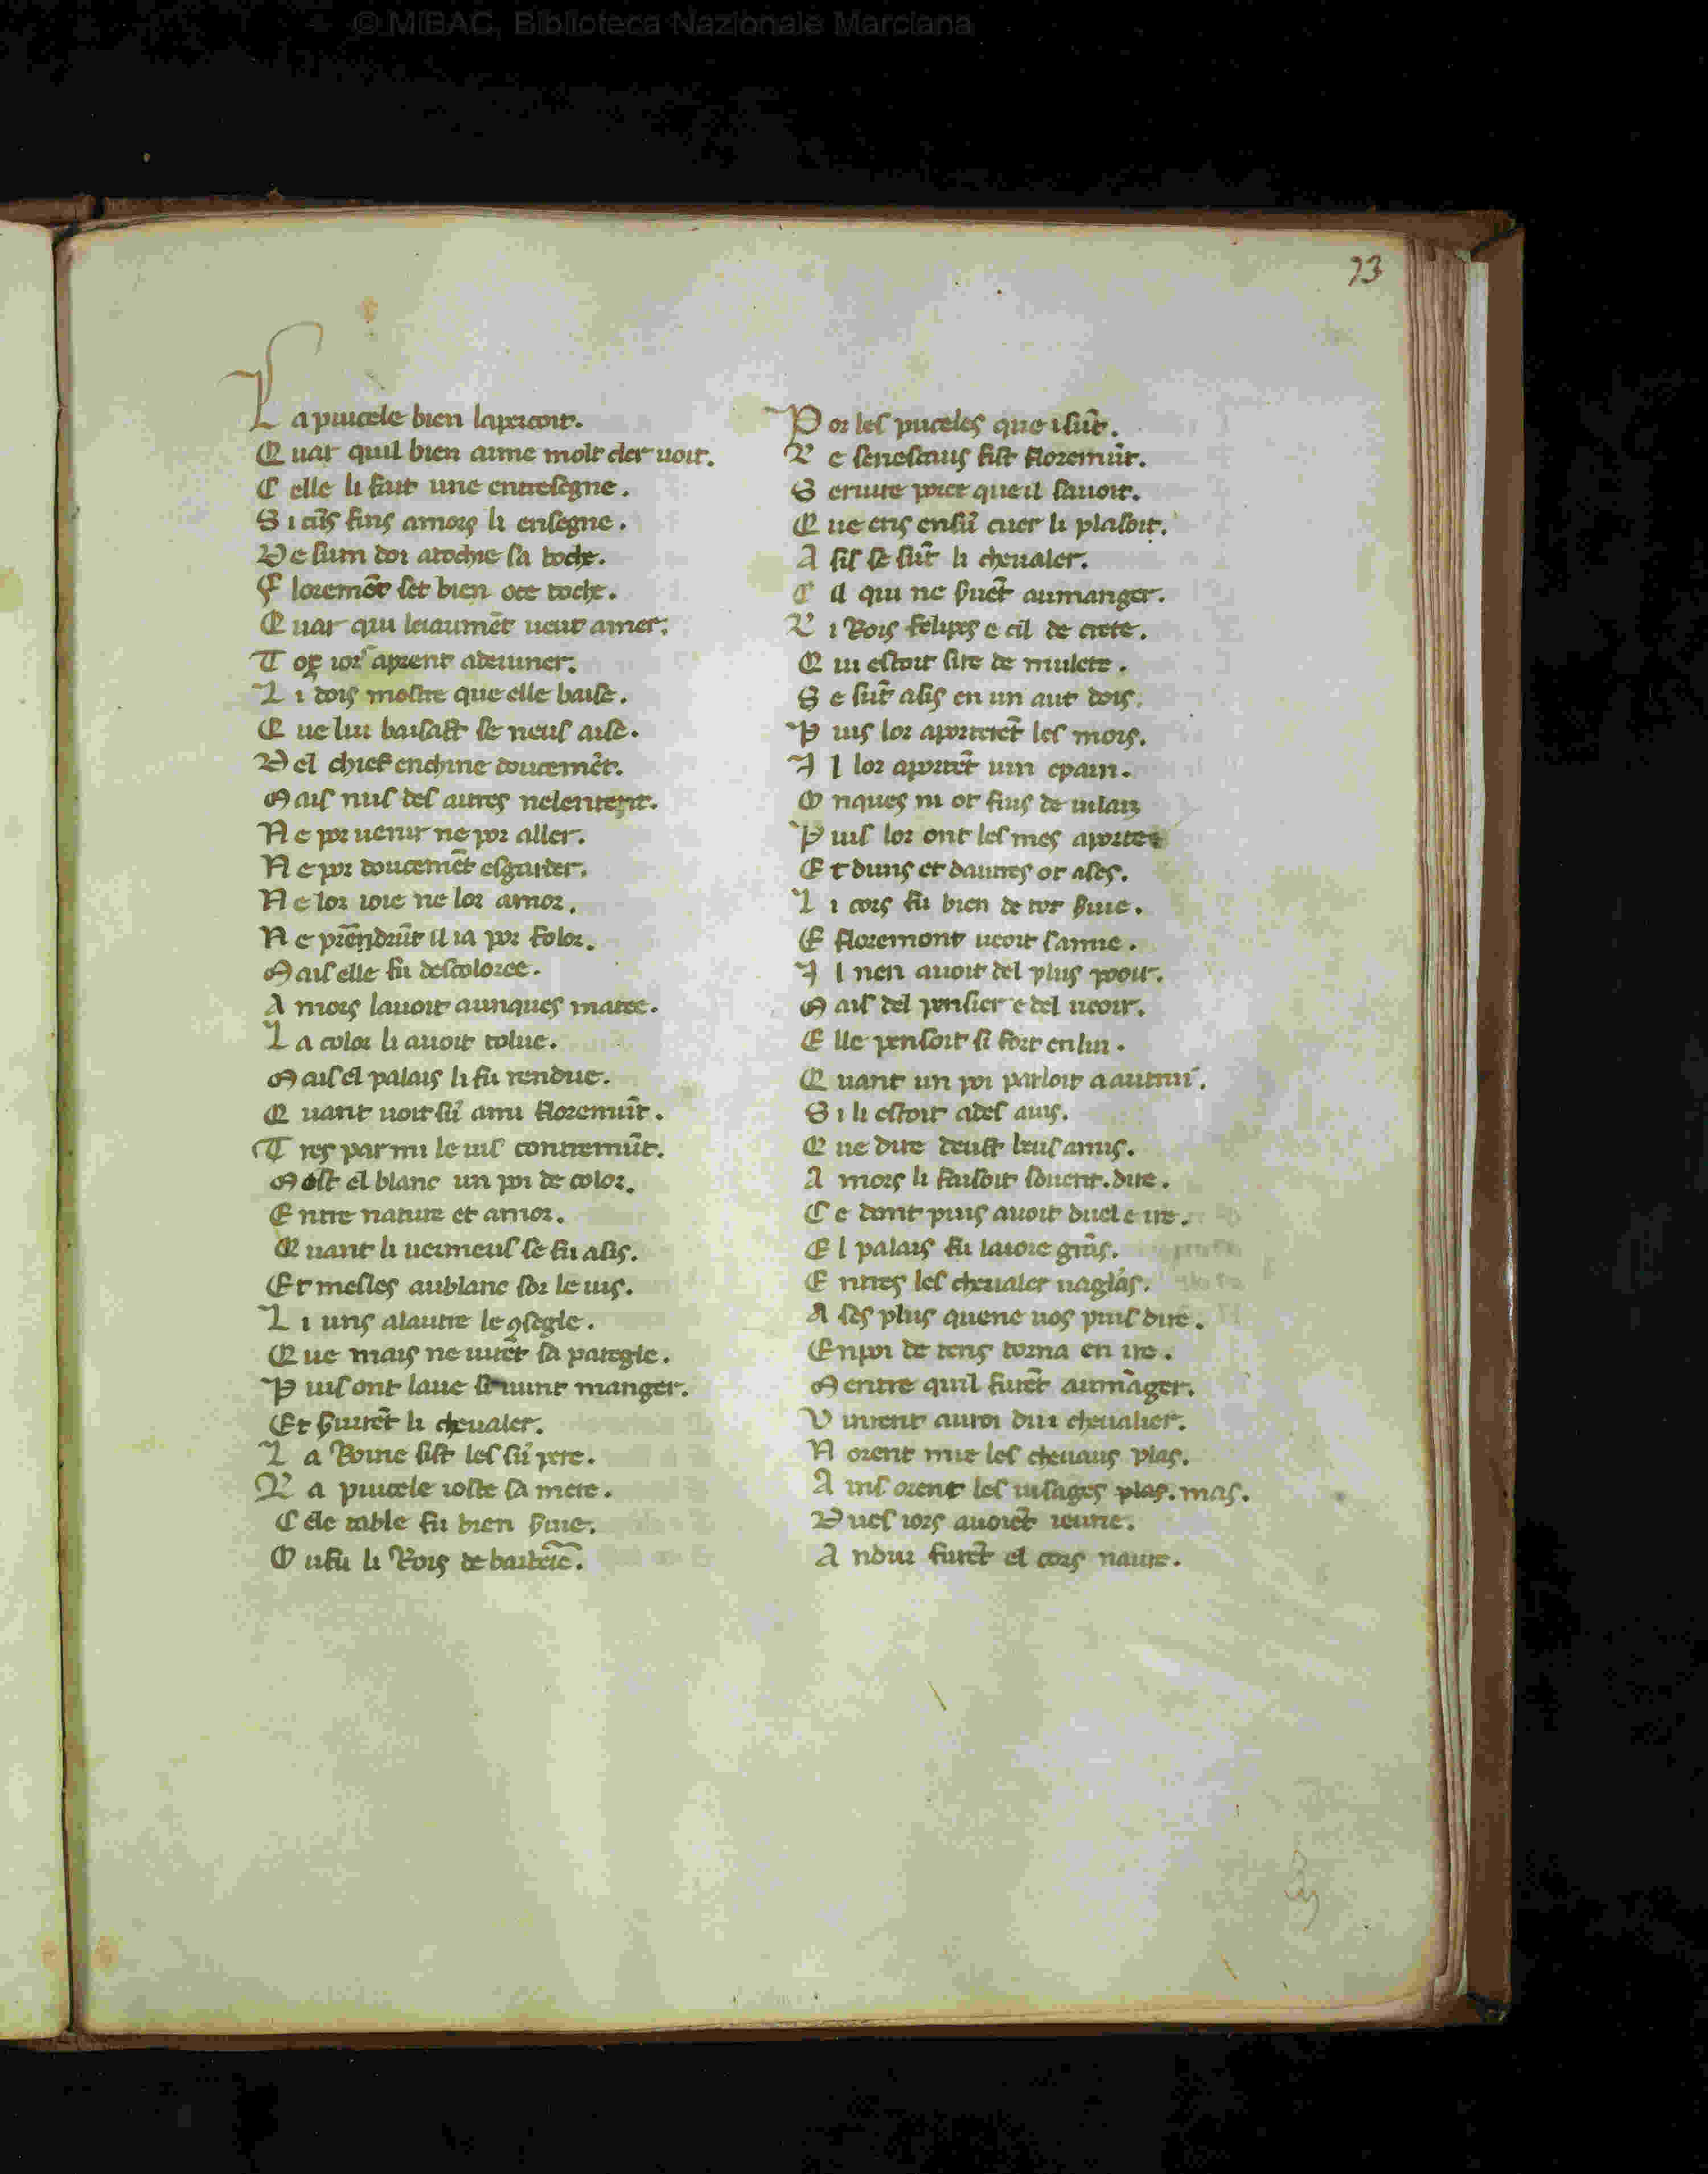 © MiBAC, Biblioteca Nazionale Marciana
73
L a pucele bien laperzoit.
Q uar quil bien aime molt cler uoit.
C elle li fait une entresegne.
S i cũ fins amors li ensegne.
D e sum doi atochie sa boche.
F loremõt set bien ote toche.
Q uar qui leiaumẽt ueut amer.
T oz iors aprent adeuiner.
L i dois mostre que elle baise.
Q ue lui baisast se neus aise.
D el chief enchine doucemẽt.
M ais nus des autres nelentent.
N e por uenir ne por aller.
N e por doucemẽt esgarder.
N e lor ioie ne lor amor.
N e prẽndrũt il ia por folor.
M ais elle fu descoloree.
A mors lauoit aunques matee.
L a color li auoit tolue.
M ais el palais li fu rendue.
Q uant uoit sũ ami floremũt.
T res par mi le uis contremũt.
M ost el blanc un poi de color.
E ntre nature et amor.
Q uant li uermeus se fu asis.
Et mesles aublanc sor le uis.
L i uns alautre le ꝯsegle.
Q ue mais ne uuẽt sa paregle.
P uis ont laue si uunt manger.
Et ẜuirẽt li cheualer.
L a Roine sist les sũ pere.
L a pucele ioste sa mere.
C ele table fu bien ẜuie.
O u fu li Rois de barberie.
P or les puceles que i sũt.
L e senescaus fist floremũt.
S eruire porce que il sauoit.
Q ue ens ensũ cuer li plasoit.
A sis se sũt li cheualer.
C il qui ne ẜuẽt aumanger.
L i Rois felipes e cil de crete.
Q ui estoit sire de mulete.
S e sũt asis en un aut dois.
P uis lor aporterẽt les mois.
I l lor aportẽt uin epain.
O nques ni ot fuis de uilain
P uis lor ont les mes aportes
E t duns et dautres ot ases.
L i cors fu bien de tot ẜuie.
E floremont ueoit samie.
I l nen auoit del plus pooir.
M ais del pensier e del ueoir.
E lle pensoit si fort en lui.
Q uant un poi parloit a autrui.
S i li estoit ades auis.
Q ue dire deust leus amis.
A mors li faisoit souent. dire.
C e dont puis auoit duel e ire.
E l palais fu laioie grãs.
E ntres les cheualer uaglãs.
A ses plus quene uos puis dire.
Enpoi de tens torna en ire.
M entre quil furẽt aumãger.
V inrent auroi dui cheualier.
N orent mie les cheuaus plas.
A ins orent les uisages plas. mas.
D ues iors auoiẽt ieune.
A ndui furẽt el cors naure.